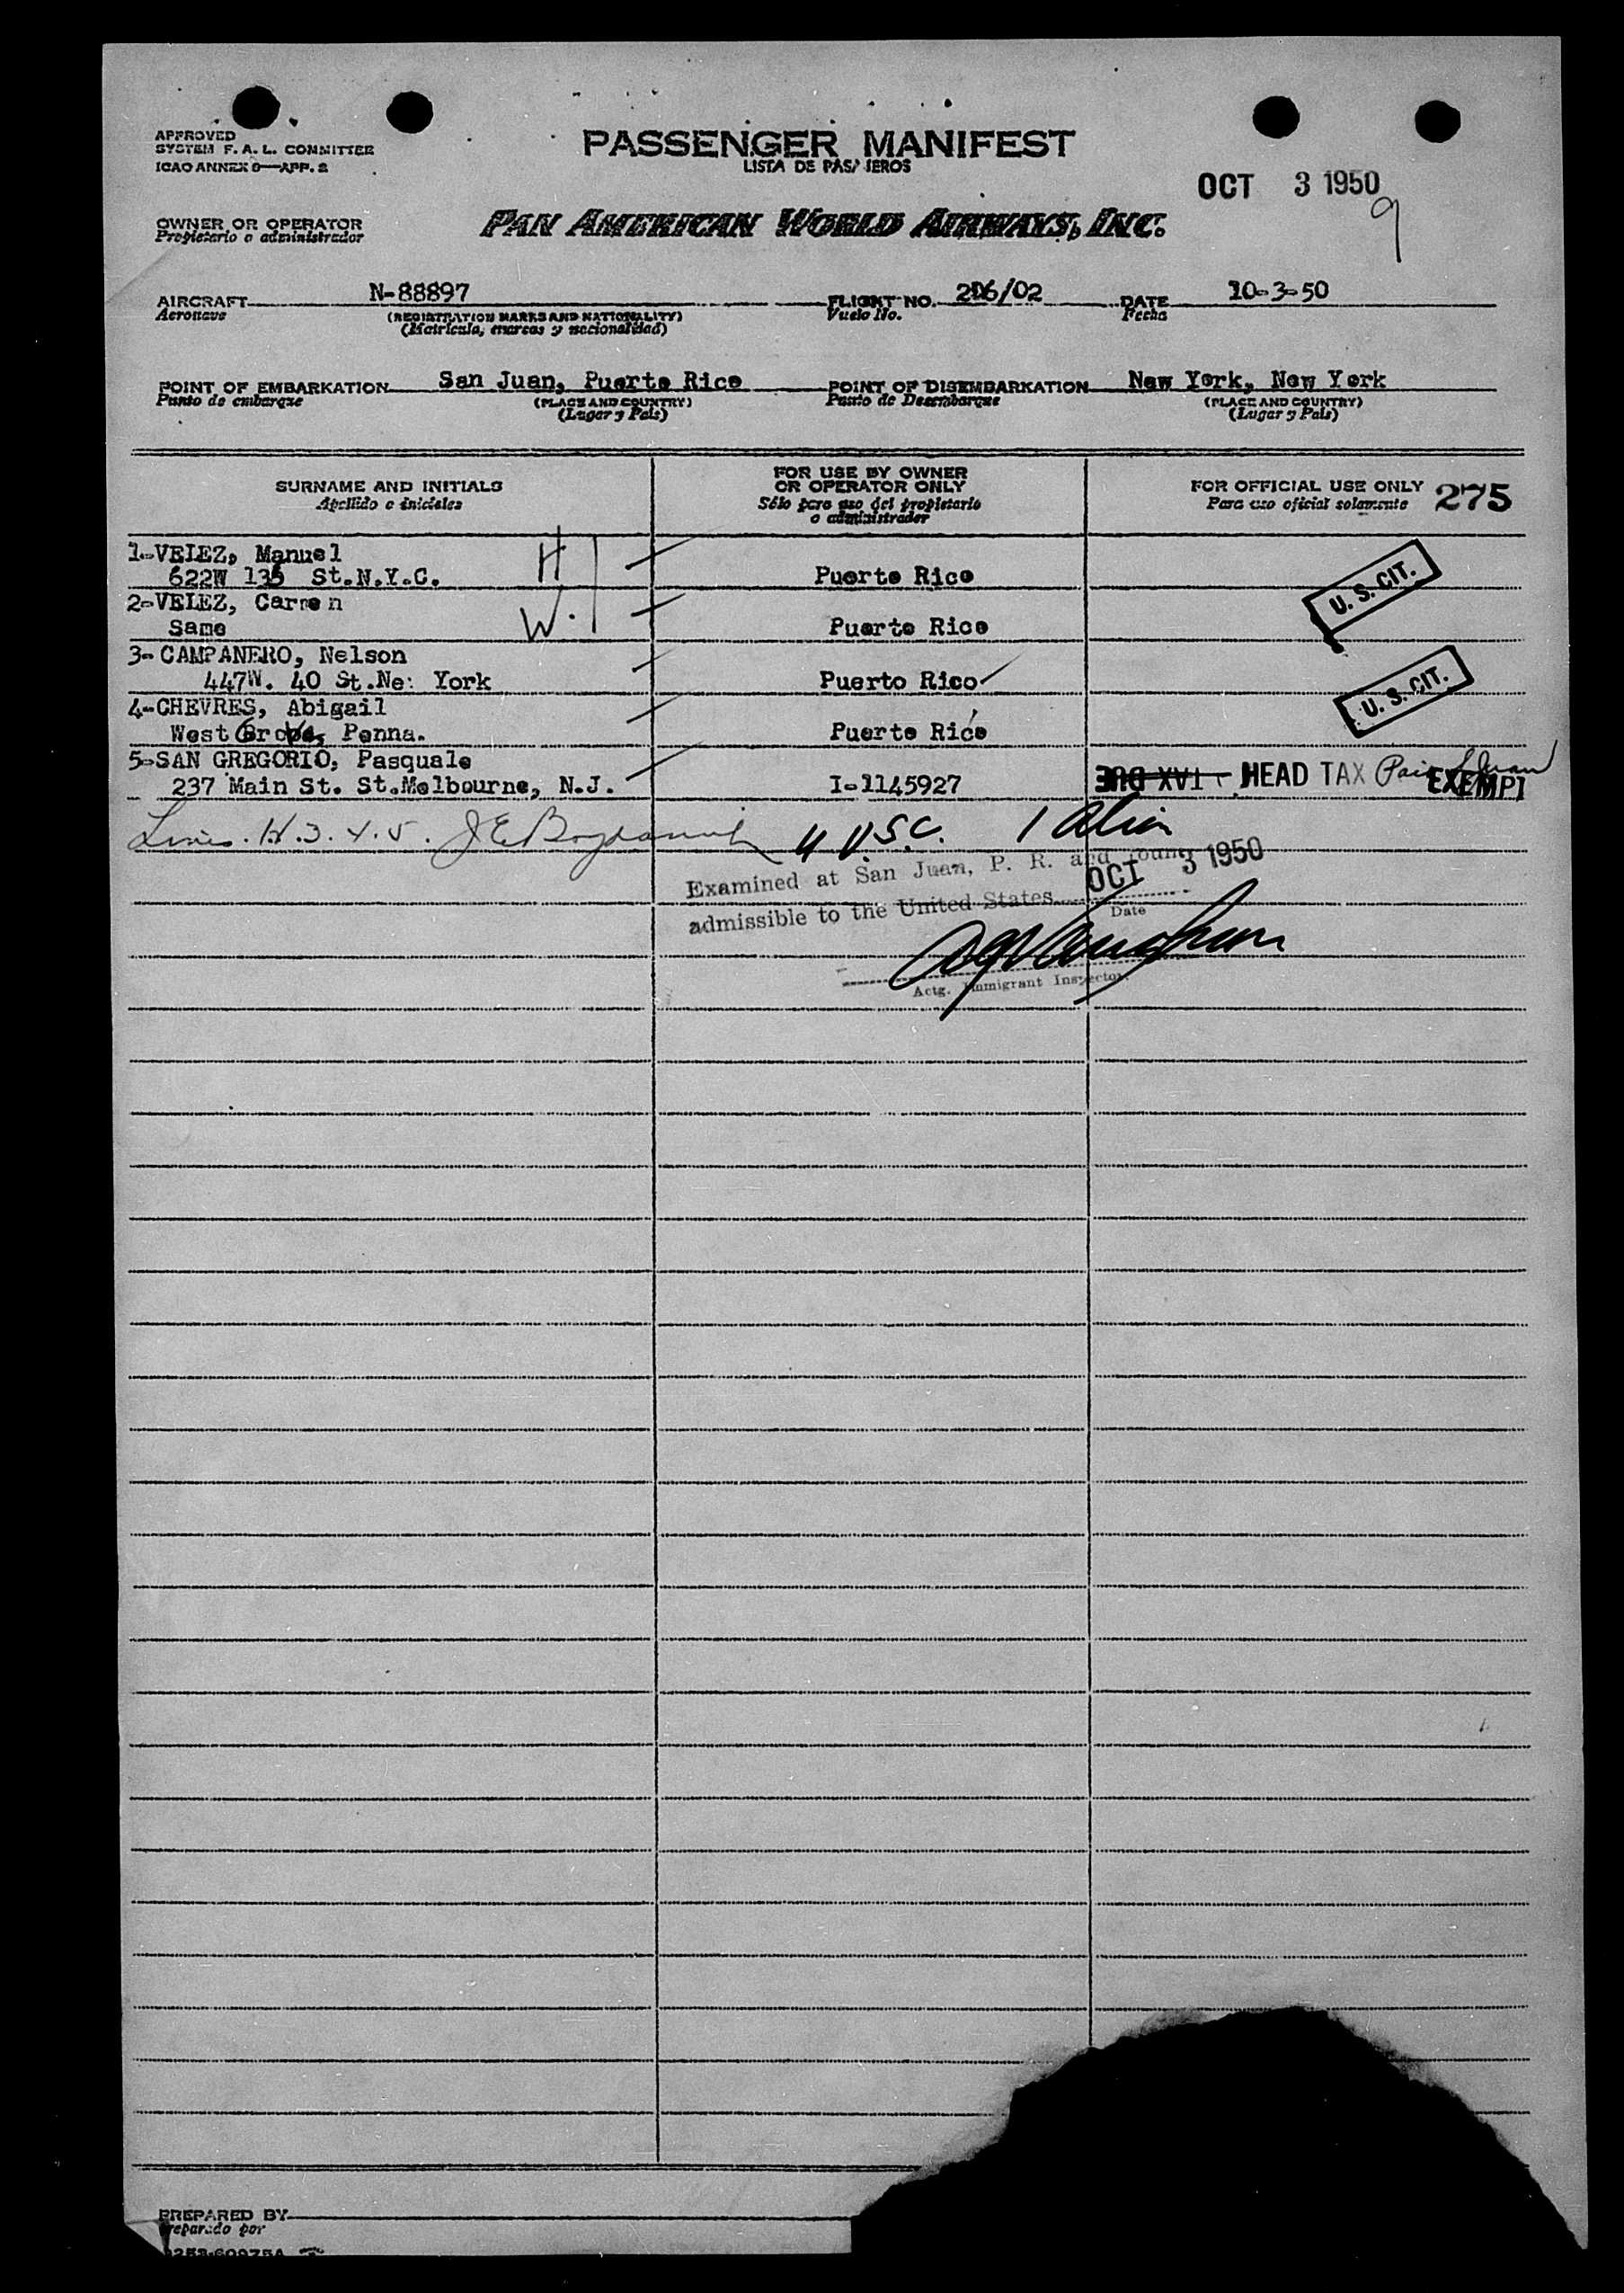 APPROVED
SYSTEM F. A. L. COMMITTEE
ICAO ANNEX 9—APP. 2
PASSENGER MANIFEST
LISTA DE PASAJEROS
OCT 3 1950
9
OWNER OR OPERATOR
Propietario o administrador
PAN AMERICAN WORLD AIRWAYS, INC.
AIRCRAFT N-88897 FLIGHT NO. 206/02 DATE 10-3-50
Aeronave (REGISTRATION MARKS AND NATIONALITY) Vuelo No. Fecha
(Matricula, marcas y nacionalidad)
POINT OF EMBARKATION San Juan, Puerto Rico POINT OF DISEMBARKATION New York, New York
Punto de embarque (PLACE AND COUNTRY) Punto de Desembarque (PLACE AND COUNTRY)
(Lugar y Pais) (Lugar y Pais)
SURNAME AND INITIALS
Apellido e iniciales
FOR USE BY OWNER
OR OPERATOR ONLY
Sólo para uso del propietario
o administrador
FOR OFFICIAL USE ONLY 275
Para uso oficial solamente
1-VELEZ, Manuel H
622W 135 St.N.Y.C. Puerto Rico U. S. CIT.
2-VELEZ, Carmen W.
Same Puerto Rico
3- CAMPANERO, Nelson
447W. 40 St.Ne: York Puerto Rico U. S. CIT.
4-CHEVRES, Abigail
West Grove, Penna. Puerto Rico
5-SAN GREGORIO, Pasquale
237 Main St. St.Melbourne, N.J. I-1145927 HEAD TAX Paid S Juan EXEMPT
Lines. 1/2.3.4.5. 4 U.S.C. 1 Alien
Examined at San Juan, P. R. and found
admissible to the United States OCT 3 1950
Date
Actg. Immigrant Inspector.
PREPARED BY
Preparado por